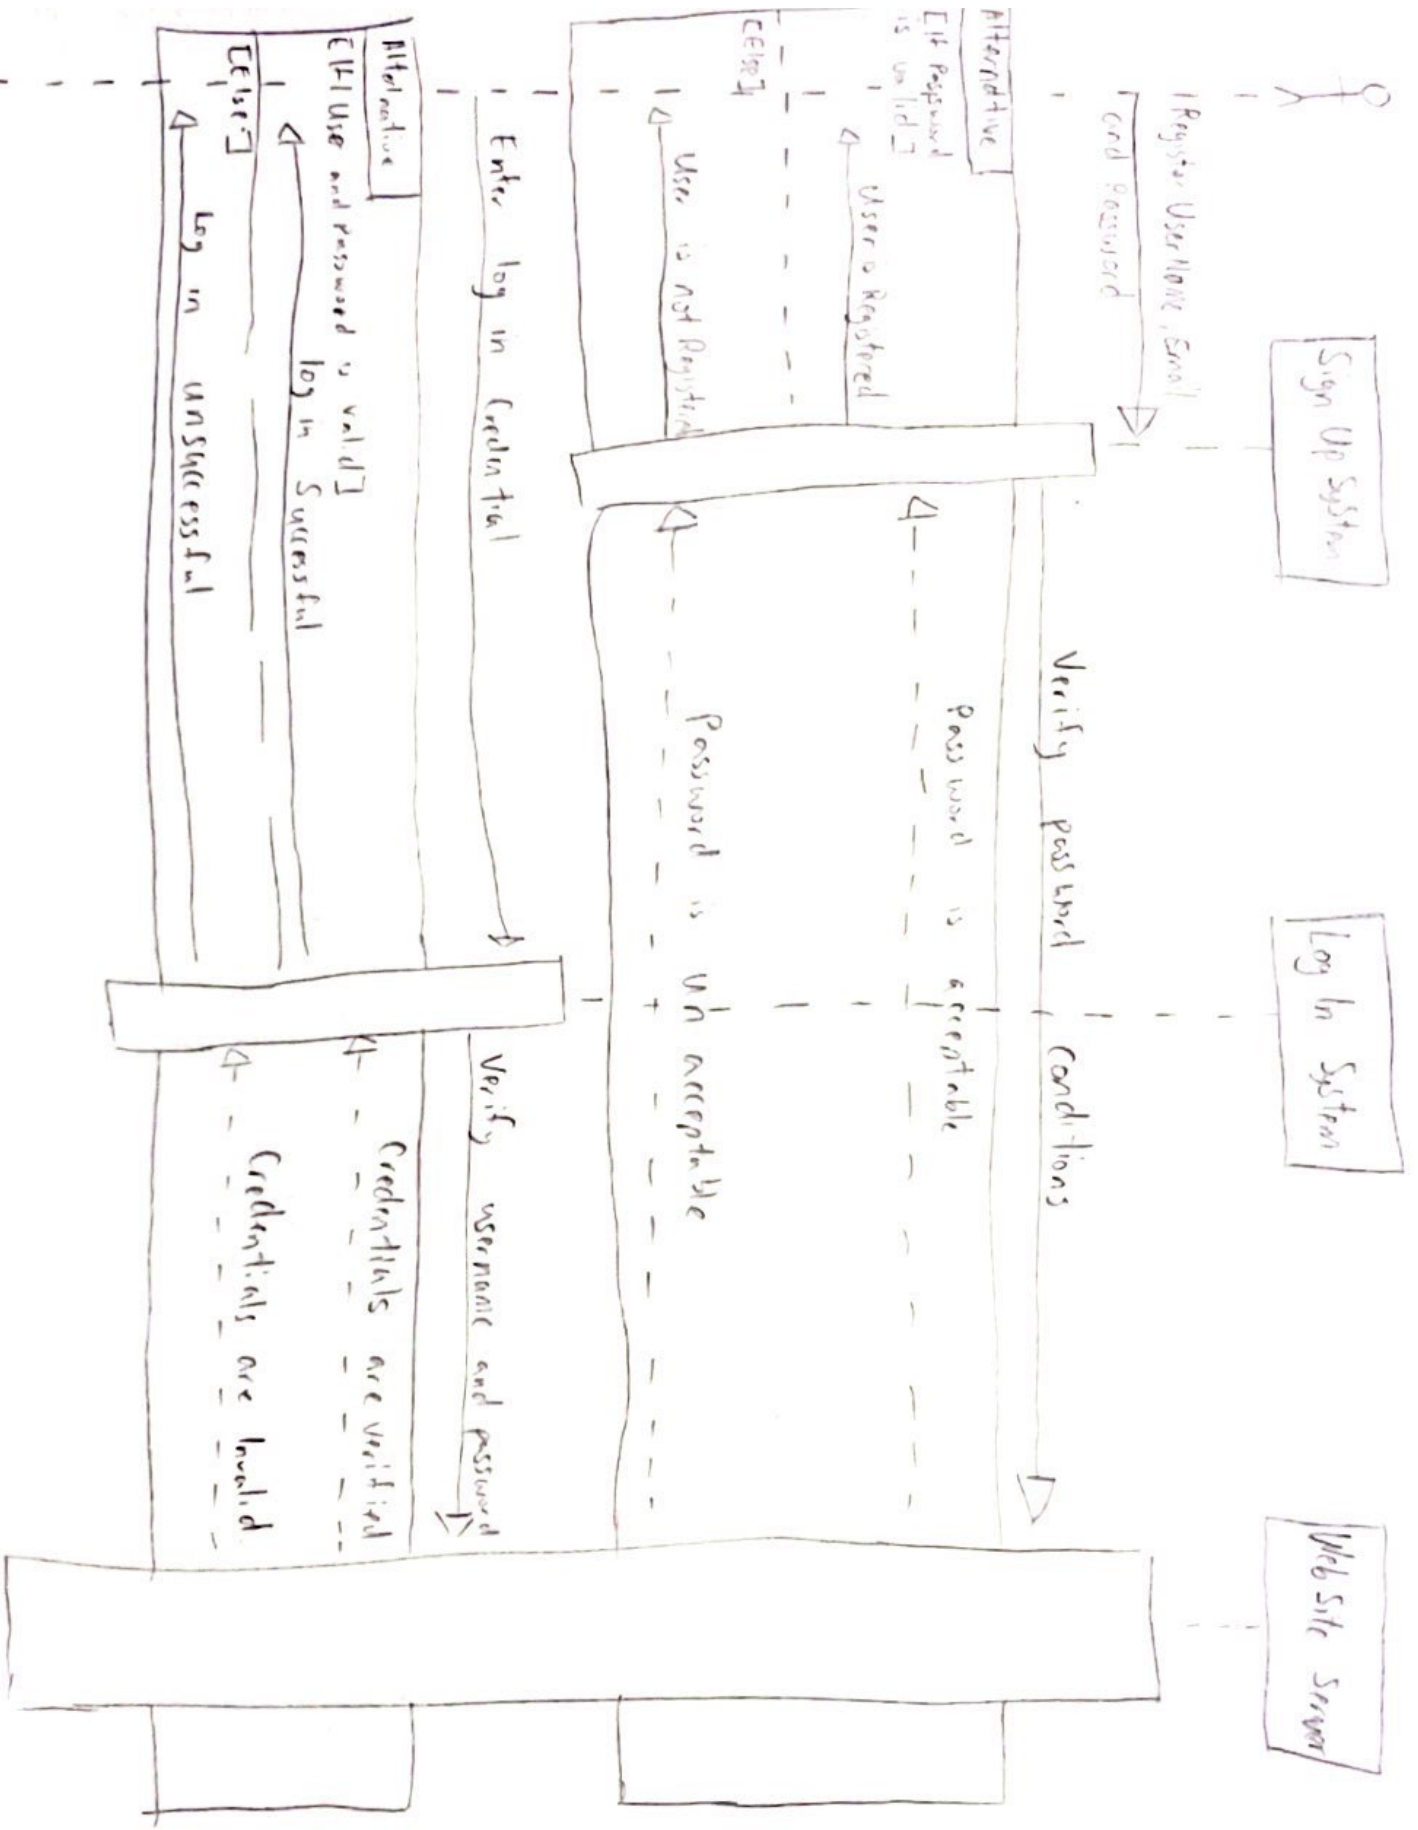 Sign Up System
Log In System
Web Site Server
Register UserName, Email
and Password
Verify password conditions
Alternative
[If Password
is valid]
User is Registered
Password is acceptable
[Else]
User is not Registered
Password is un acceptable
Enter log in Credential
Verify username and password
Alternative
[If User and Password is valid]
Credentials are verified
log in Successful
[Else]
Credentials are Invalid
Log in unsuccessful